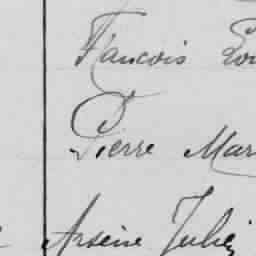 Francois Lou
Pierre Mar
Arsène Julie